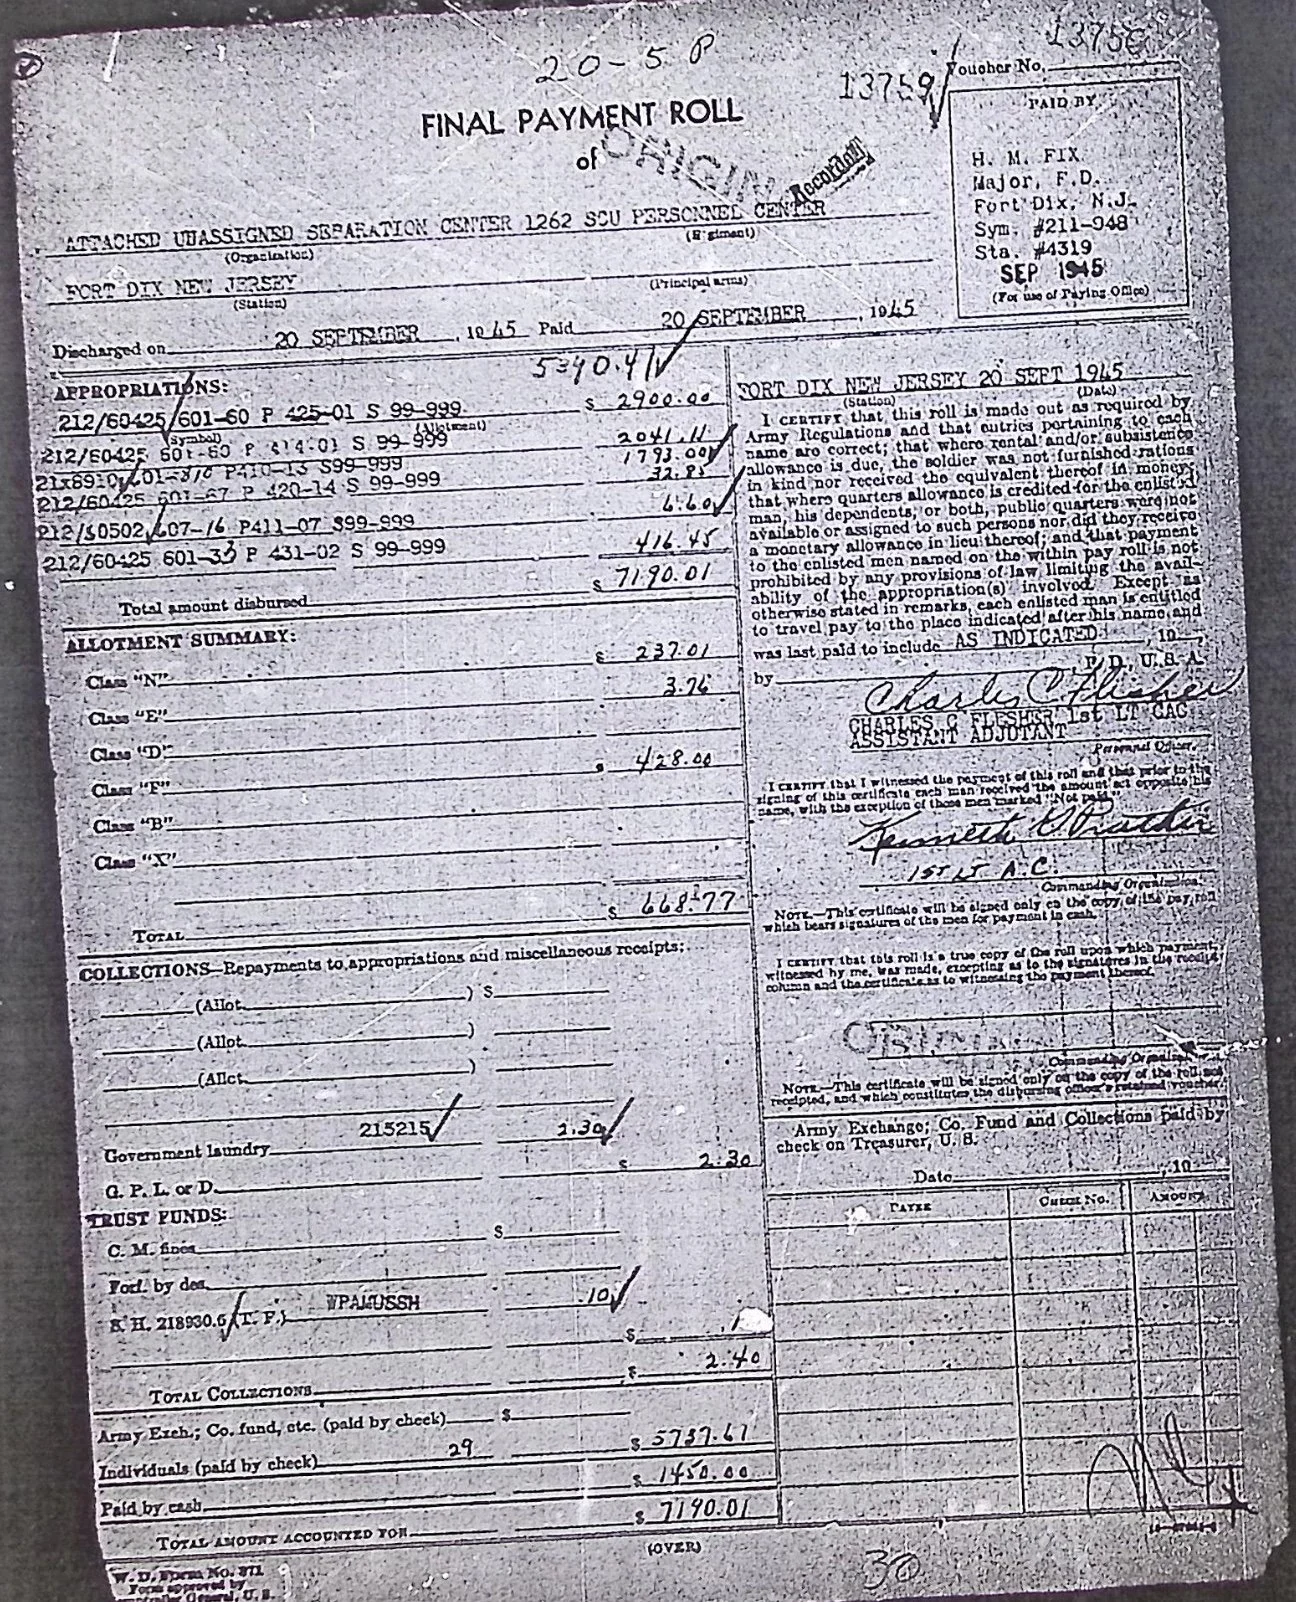 20-5 P
13759
Voucher No.
FINAL PAYMENT ROLL
of
ORIGIN
PAID BY
H. M. FIX
Major, F.D.
Fort Dix, N.J.
Sym. #211-948
Sta. #4319
SEP 1945
(For use of Paying Office)
ATTACHED UNASSIGNED SEPARATION CENTER 1262 SCU PERSONNEL CENTER
(Organization) (Regiment)
FORT DIX NEW JERSEY
(Station) (Principal arms)
Discharged on 20 SEPTEMBER, 1945 Paid 20 SEPTEMBER, 1945
APPROPRIATIONS:
212/60425 601-60 P 425-01 S 99-999 $ 2900.00
(Symbol) (Allotment)
212/60425 601-60 P 414-01 S 99-999 2041.11
P410-13 S99-999 1793.00
212/60425 601-67 P 420-14 S 99-999 32.85
607-16 P411-07 S99-999 6.60
212/60425 601-33 P 431-02 S 99-999 416.45
Total amount disbursed $ 7190.01
ALLOTMENT SUMMARY:
Class "N" $ 237.01
Class "E" 3.76
Class "D"
Class "F" $ 428.00
Class "B"
Class "X"
TOTAL $ 668.77
COLLECTIONS—Repayments to appropriations and miscellaneous receipts:
(Allot. ) $
(Allot. )
(Allot. )
Government laundry 215215 2.30
G. P. L. or D. $ 2.30
TRUST FUNDS:
C. M. fines $
Forf. by des.
S. H. 218930.6 (T. F.) WPAMUSSH .10
$ .1
TOTAL COLLECTIONS $ 2.40
Army Exch.; Co. fund, etc. (paid by check) $
Individuals (paid by check) 29 $ 5737.61
Paid by cash $ 1450.00
TOTAL AMOUNT ACCOUNTED FOR $ 7190.01
W. D. Form No. 371
Form approved by
General, U. S.
FORT DIX NEW JERSEY 20 SEPT 1945
(Station) (Date)
I CERTIFY that this roll is made out as required by
Army Regulations and that entries pertaining to each
name are correct; that where rental and/or subsistence
allowance is due, the soldier was not furnished rations
in kind nor received the equivalent thereof in money;
that where quarters allowance is credited for the enlisted
man, his dependents, or both, public quarters were not
available or assigned to such persons nor did they receive
a monetary allowance in lieu thereof; and that payment
to the enlisted men named on the within pay roll is not
prohibited by any provisions of law limiting the avail-
ability of the appropriation(s) involved. Except as
otherwise stated in remarks, each enlisted man is entitled
to travel pay to the place indicated after his name, and
was last paid to include AS INDICATED, 19
by , F. D., U. S. A.
Charles C Flesher
CHARLES C FLESHER 1st LT CAC
ASSISTANT ADJUTANT
Personnel Officer.
I CERTIFY that I witnessed the payment of this roll and that prior to the
signing of this certificate each man received the amount set opposite his
name, with the exception of those men marked "Not paid."
Kenneth
1ST LT A.C.
Commanding Organization.
NOTE.—This certificate will be signed only on the copy of the pay roll
which bears signatures of the men for payment in cash.
I CERTIFY that this roll is a true copy of the roll upon which payment,
witnessed by me, was made, excepting as to the signatures in the receipt
column and the certificate as to witnessing the payment thereof.
Commanding
NOTE.—This certificate will be signed only on the copy of the roll not
receipted, and which constitutes the disbursing officer's retained voucher.
Army Exchange; Co. Fund and Collections paid by
check on Treasurer, U. S.
Date , 19
PAYEE CHECK NO. AMOUNT
(OVER)
30